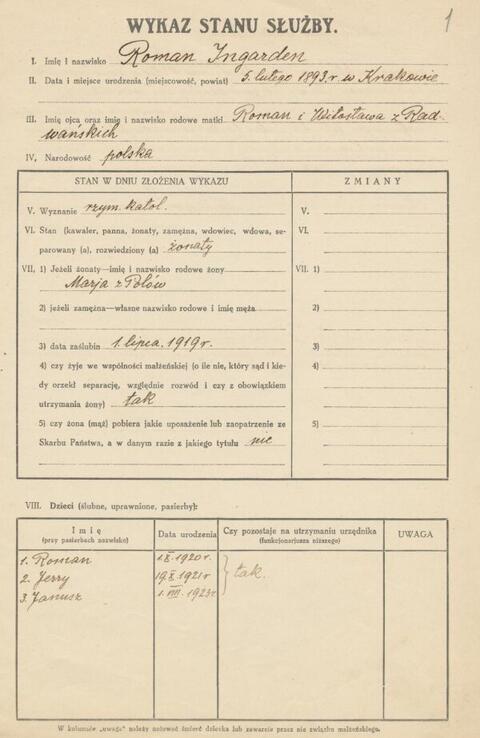 1
WYKAZ STANU SŁUŻBY.
I. Imię i nazwisko Roman Ingarden
II. Data i miejsce urodzenia (miejscowość, powiat) 5. lutego 1893. r. w Krakowie
III. Imię ojca oraz imię i nazwisko rodowe matki Roman i Witosława z Rad-
wańskich
IV. Narodowość polska
STAN W DNIU ZŁOŻENIA WYKAZU ZMIANY
V. Wyznanie rzym. katol. V.
VI. Stan (kawaler, panna, żonaty, zamężna, wdowiec, wdowa, se- VI.
parowany (a), rozwiedziony (a) żonaty
VII. 1) Jeżeli żonaty—imię i nazwisko rodowe żony VII. 1)
Marja z Polów
2) jeżeli zamężna—własne nazwisko rodowe i imię męża 2)
3) data zaślubin 1. lipca. 1919 r. 3)
4) czy żyje we wspólności małżeńskiej (o ile nie, który sąd i kie- 4)
dy orzekł separację, względnie rozwód i czy z obowiązkiem
utrzymania żony) tak
5) czy żona (mąż) pobiera jakie uposażenie lub zaopatrzenie ze 5)
Skarbu Państwa, a w danym razie z jakiego tytułu nie
VIII. Dzieci (ślubne, uprawnione, pasierby):
Imię Data urodzenia Czy pozostaje na utrzymaniu urzędnika UWAGA
(przy pasierbach nazwisko) (funkcjonarjusza niższego)
1. Roman 1. X. 1920 r.
2. Jerzy 19. X. 1921 r tak.
3. Janusz 1. VIII. 1923 r.
W kolumnie „uwaga" należy notować śmierć dziecka lub zawarcie przez nie związku małżeńskiego.